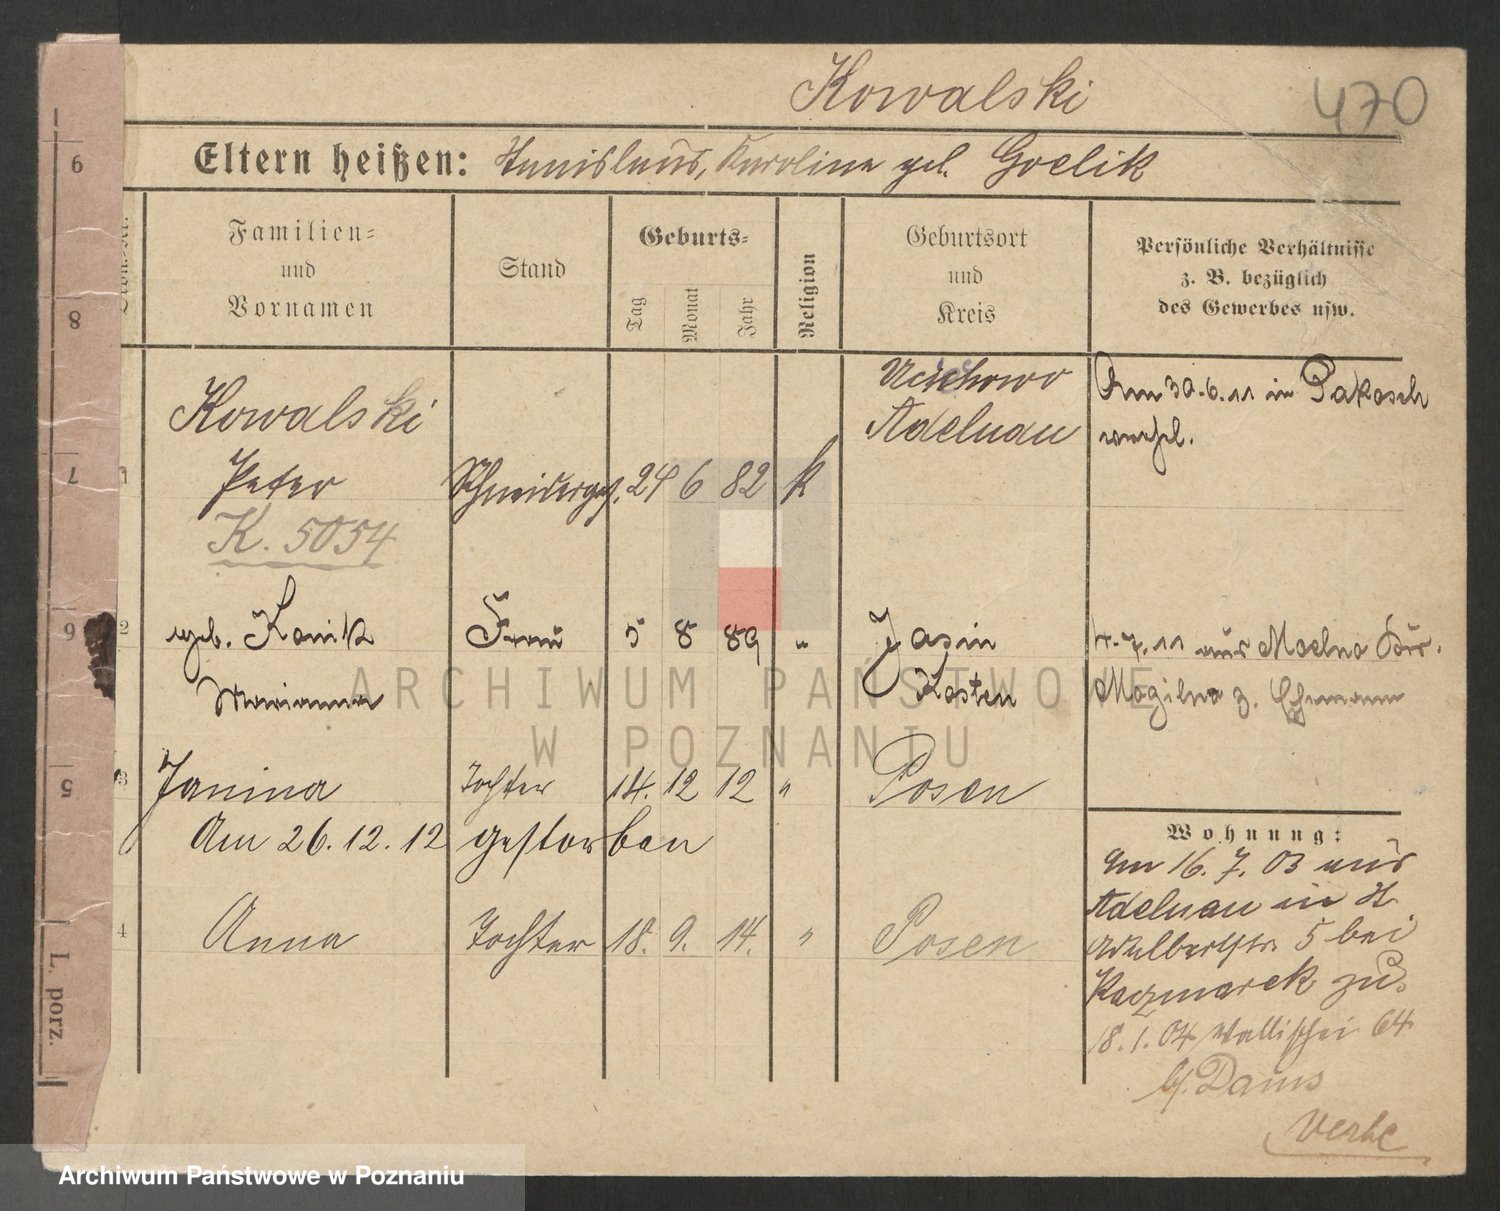 Kowalski
470
Eltern heißen: Stanislaus, Karoline geb. Goelik
Familien-
und
Vornamen
Stand
Geburts-
Tag
Monat
Jahr
Religion
Geburtsort
und
Kreis
Persönliche Verhältnisse
z. B. bezüglich
des Gewerbes usw.
Kowalski
Uciechowo
Adelnau
Am 30.6.11 in Pakosch
verehel.
1 Peter Schneiderges. 24 6 82 k
K. 5054
2 geb. Konik Frau 5 8 89 " Jasin
Marianna Kosten
4.7.11 aus Moelno Kr.
Mogilno z. Ehemann
3 Janina Tochter 14. 12 12 " Posen
Am 26.12.12 gestorben
4 Anna Tochter 18. 9. 14. " Posen
Wohnung:
Am 16.7.03 aus
Adelnau in St
Adalbertstr. 5 bei
Kaczmarek zu.
18.1.04 Wallischei 64
b/. Daums
9
8
7
6
5
L. porz.
ARCHIWUM PAŃSTWOWE
W POZNANIU
Archiwum Państwowe w Poznaniu